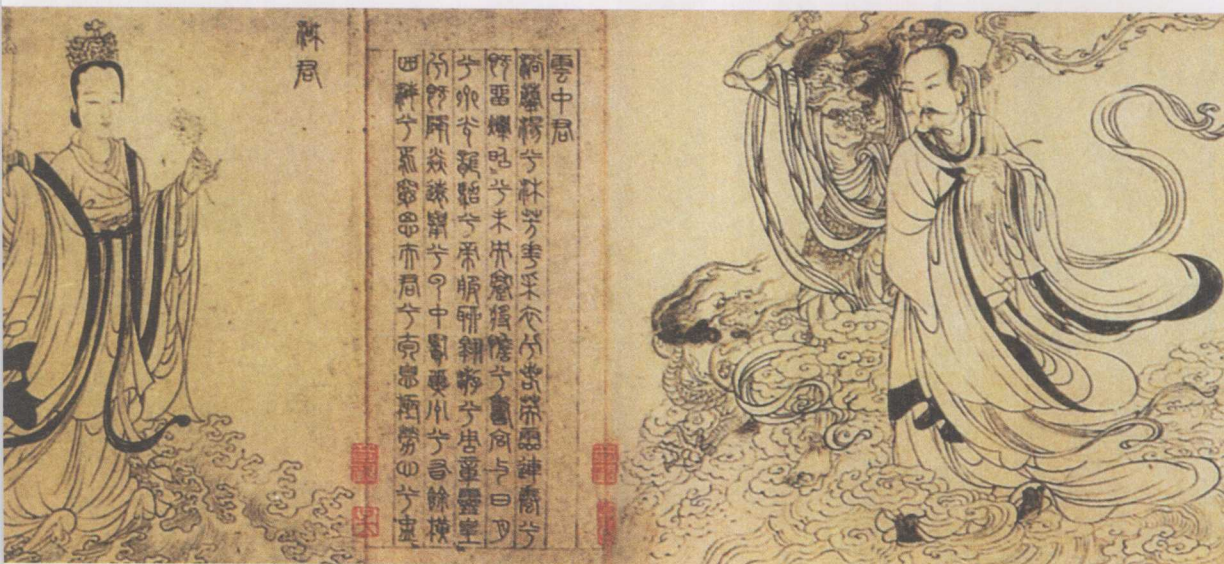 雲中君
浴蘭湯兮沐芳華采衣兮若英靈連蜷兮
既留爛昭兮未央蹇將憺兮壽宮与日月
兮齊光龍駕兮帝服聊翱游兮周章靈皇
兮既降猋遠舉兮雲中覽冀州兮有餘橫
四海兮焉窮思夫君兮太息極勞心兮忡
湘君